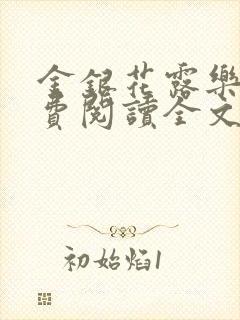 金銀花露樂
費閱讀全文
初始焰1